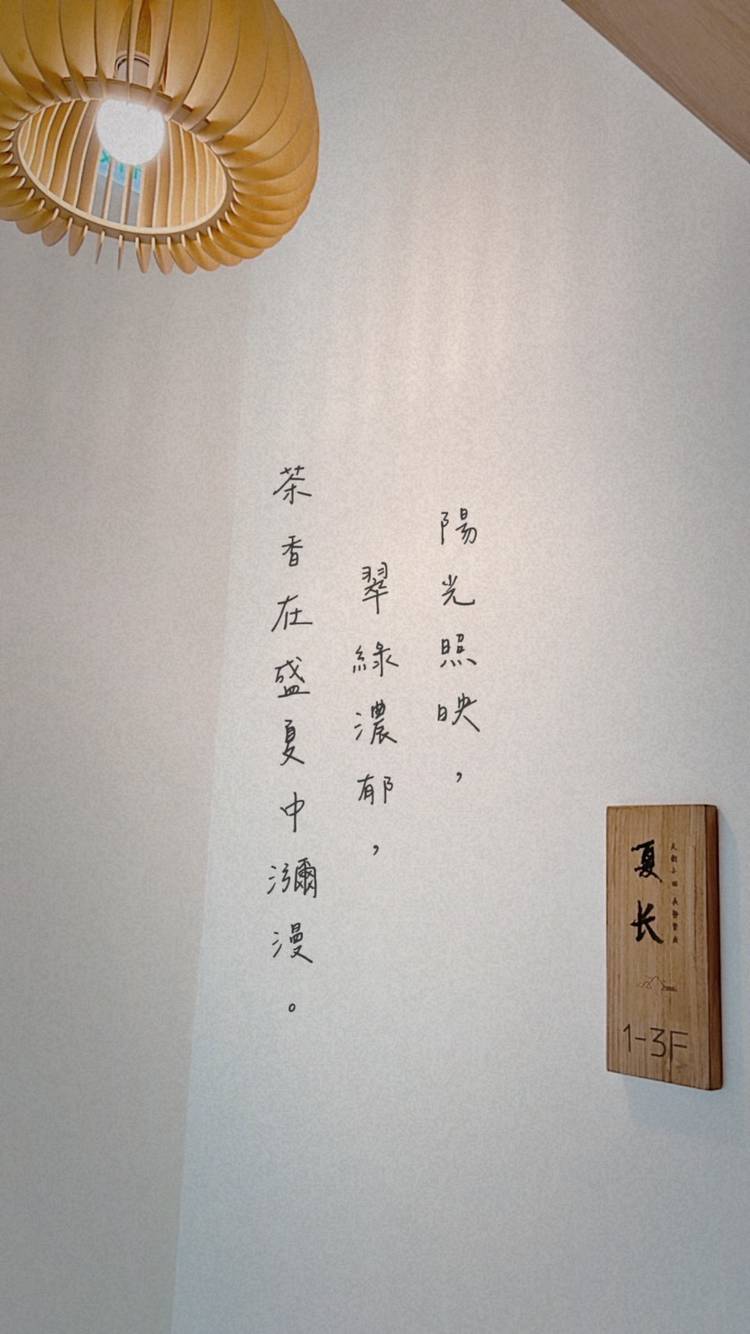 陽光照映，
翠綠濃郁，
茶香在盛夏中瀰漫。
夏长
1-3F